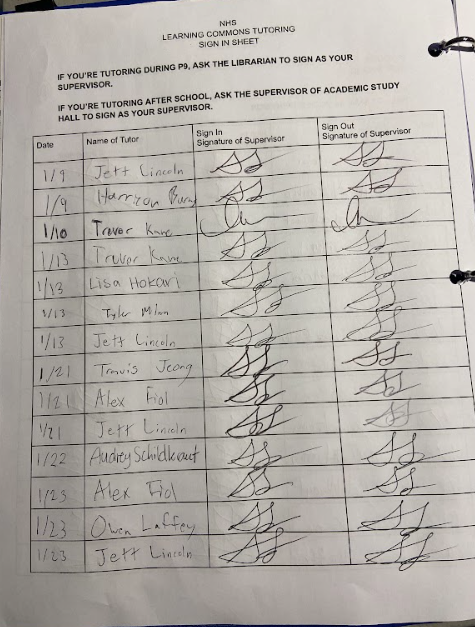 NHS
LEARNING COMMONS TUTORING
SIGN IN SHEET
IF YOU'RE TUTORING DURING P9, ASK THE LIBRARIAN TO SIGN AS YOUR
SUPERVISOR.
IF YOU'RE TUTORING AFTER SCHOOL, ASK THE SUPERVISOR OF ACADEMIC STUDY
HALL TO SIGN AS YOUR SUPERVISOR.
Date Name of Tutor Sign In Signature of Supervisor Sign Out Signature of Supervisor
1/9 Jett Lincoln
1/9 Harrison
1/10 Trevor Kane
1/13 Trevor Kane
1/13 Lisa Hokari
1/13 Tyler
1/13 Jett Lincoln
1/21 Travis Jeong
1/21 Alex Fiol
1/21 Jett Lincoln
1/22 Audrey Schildkraut
1/23 Alex Fiol
1/23 Owen Laffey
1/23 Jett Lincoln